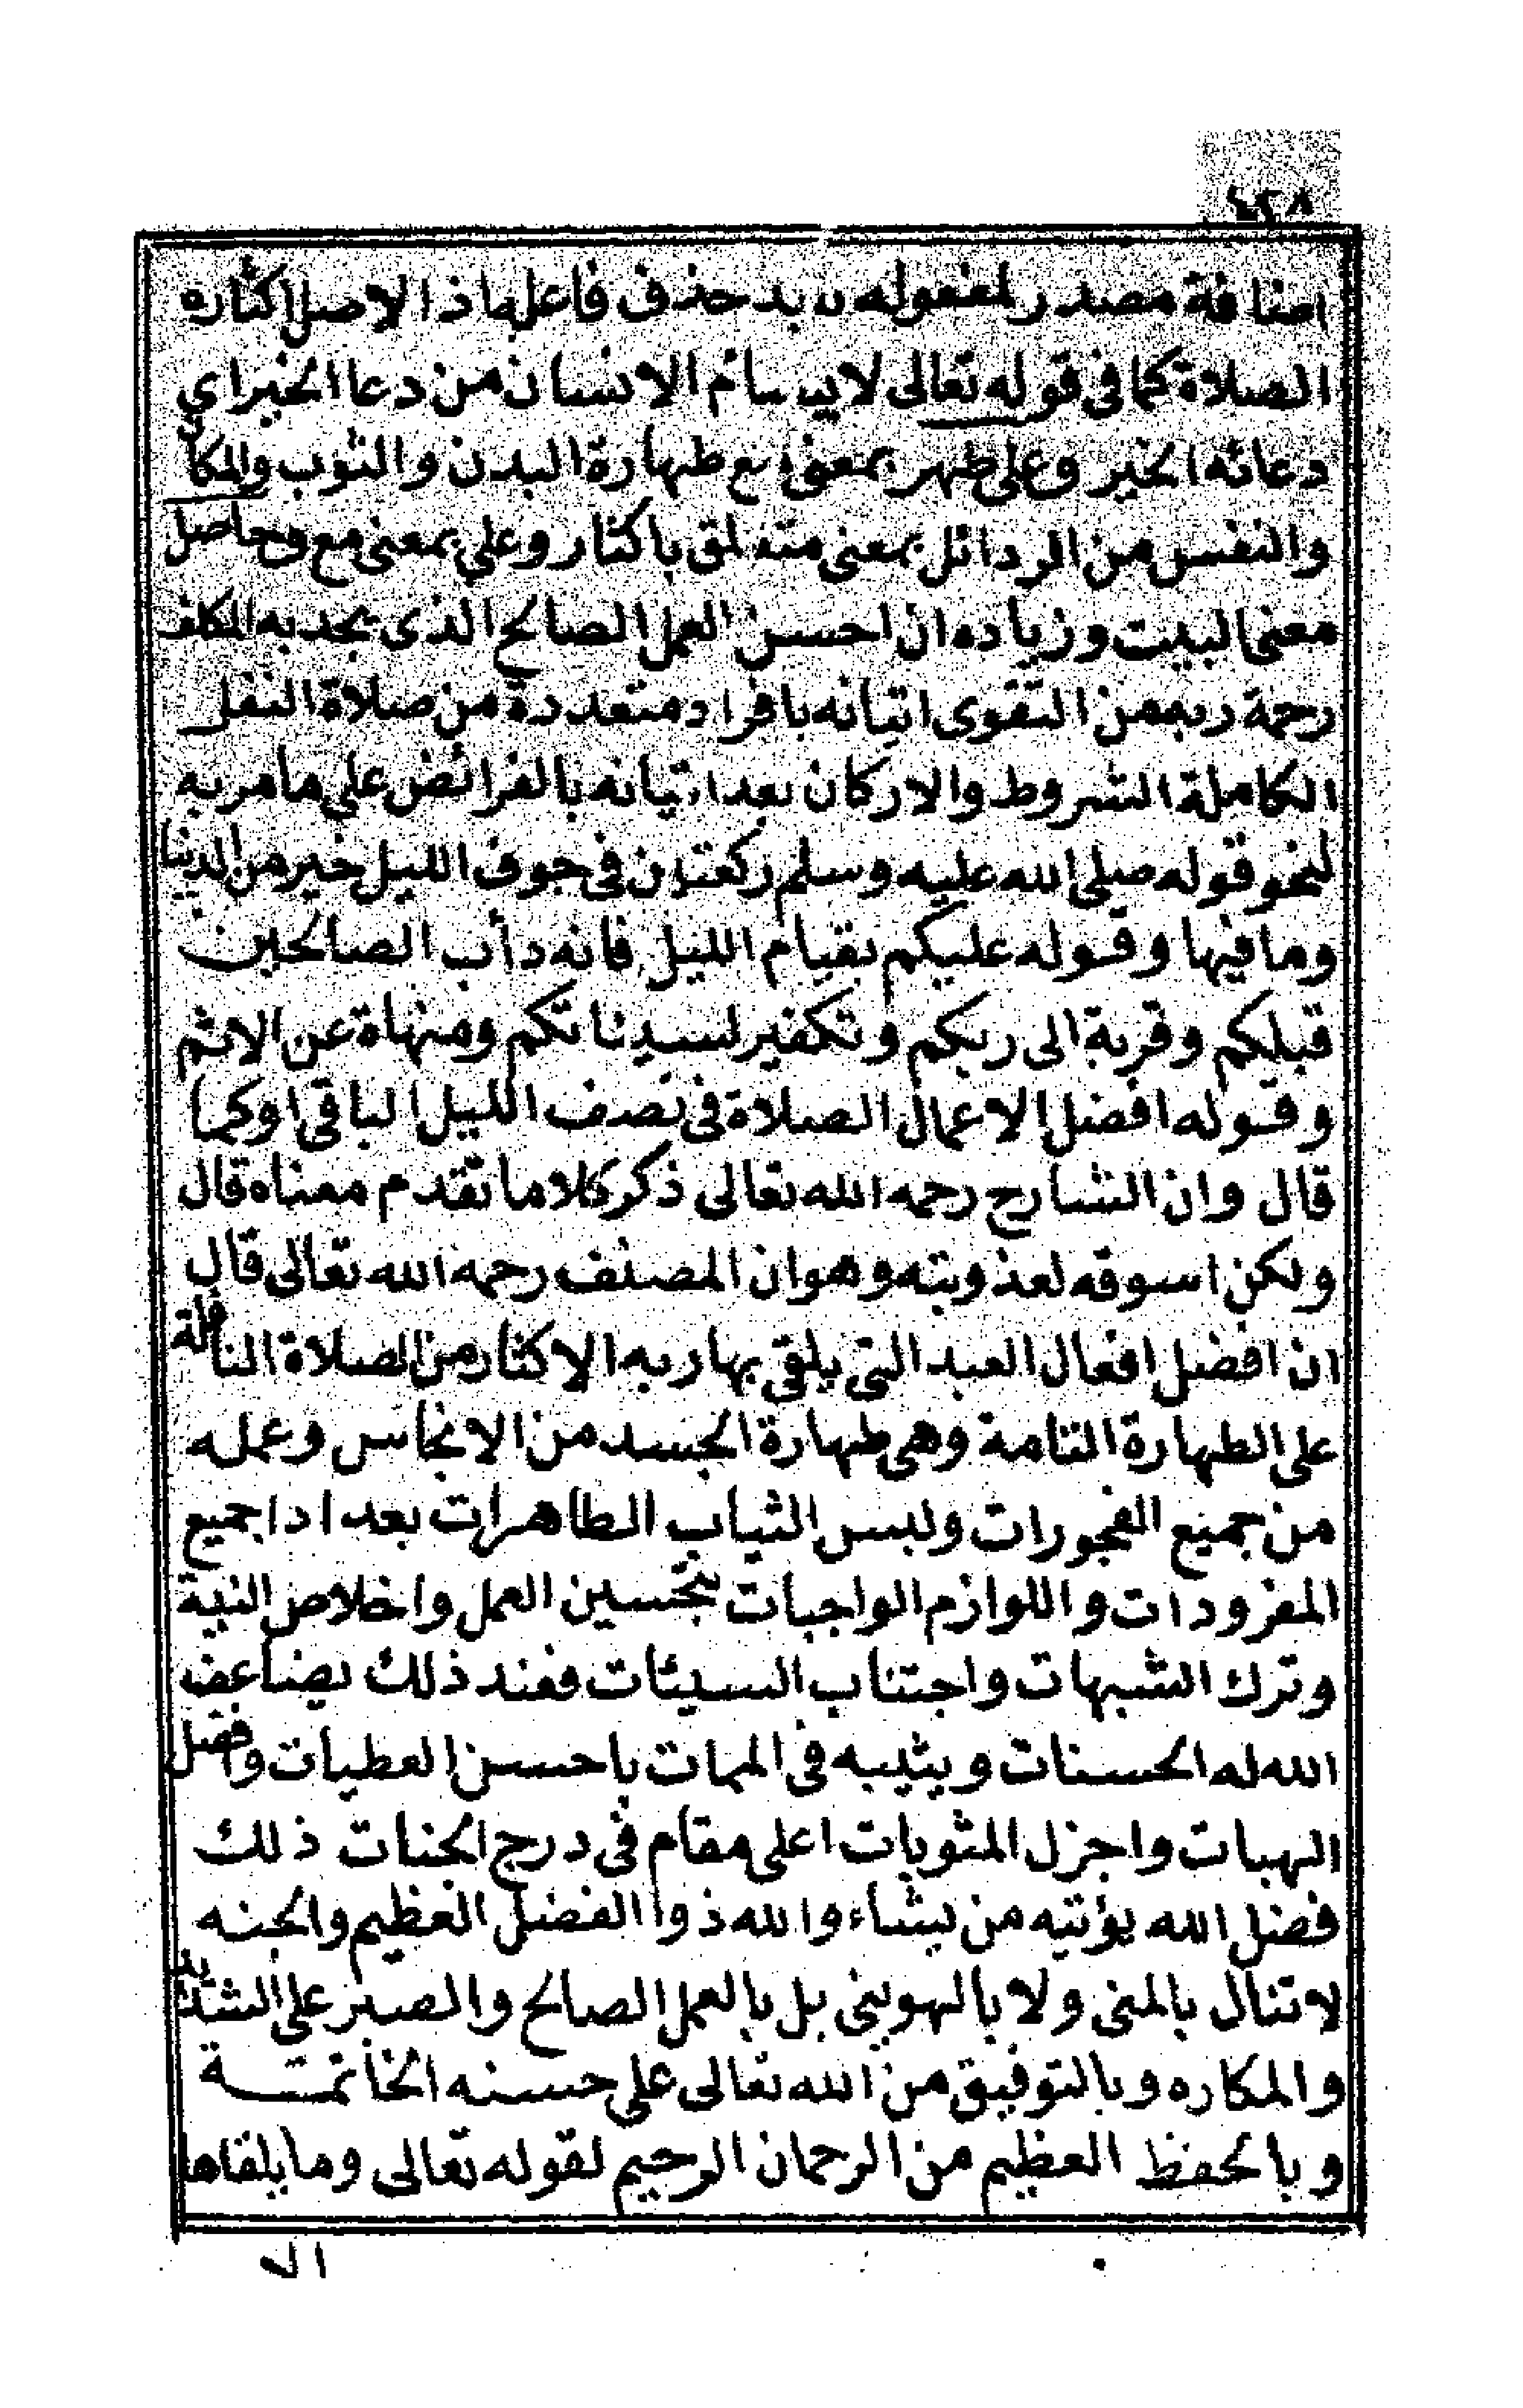 ٤٢٨
اضافة مصدر لمفعوله بعد حذف فاعله اذ الاصل اكثاره
الصلاة كما فى قوله تعالى لا يسأم الانسان من دعا الخير اي
دعائه الخير وعلى طهر بمعنى مع طهارة البدن والثوب والمكان
والنفس من الردائل بمعنى متعلق باكثار وعلى بمعنى مع وحاصل
معنى البيت وزياده ان احسن العمل الصالح الذى يجد به المكلف
رحمة ربه من التقوى اتيانه بافراد متعددة من صلاة النفل
الكاملة الشروط والاركان بعد اتيانه بالفرائض على ما مر به
لنحو قوله صلى الله عليه وسلم ركعتان فى جوف الليل خير من الدنيا
وما فيها وقوله عليكم بقيام الليل فانه دأب الصالحين
قبلكم وقربة الى ربكم وتكفير لسيئاتكم ومنهاة عن الاثم
وقوله افضل الاعمال الصلاة فى نصف الليل الباقى او كما
قال وان الشارح رحمه الله تعالى ذكر كلاما تقدم معناه قال
ولكن اسوقه لعذوبته وهو ان المصنف رحمه الله تعالى قال
ان افضل افعال العبد التى يلقى بها ربه الاكثار من الصلاة النافلة
على الطهارة التامة وهى طهارة الجسد من الانجاس وعمله
من جميع الفجورات ولبس الثياب الطاهرات بعد ادا جميع
المفرودات واللوازم الواجبات بتحسين العمل واخلاص النية
وترك الشبهات واجتناب السيئات فعند ذلك يضاعف
الله له الحسنات ويثيبه فى الممات باحسن العطيات وافضل
الهبات واجزل المثوبات اعلى مقام فى درج الجنات ذلك
فضل الله يؤتيه من يشاء والله ذوا الفضل العظيم والجنه
لا تنال بالمنى ولا بالهوينى بل بالعمل الصالح والصبر على الشدائد
والمكاره وبالتوفيق من الله تعالى على حسنه الخاتمة
وبالحفظ العظيم من الرحمان الرحيم لقوله تعالى وما يلقاها
الا